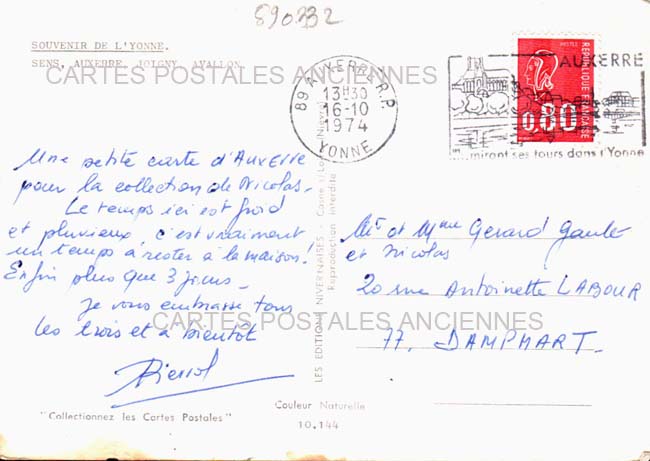 890332
SOUVENIR DE L'YONNE.
SENS, AUXERRE, JOIGNY, AVALLON
CARTES POSTALES ANCIENNES
89 AUXERRE R.P.
13H30
16-10
1974
YONNE
AUXERRE
mirant ses tours dans l'Yonne
POSTES
REPUBLIQUE FRANCAISE
0,80
Une petite carte d'Auxerre
pour la collection de Nicolas.
Le temps ici est froid
et pluvieux, c'est vraiment
un temps à rester à la maison.
Enfin plus que 3 jours.
Je vous embrasse tous
les trois et à bientôt
LES EDITIONS NIVERNAISES
Reproduction interdite
Mr et Mme Gérard
et Nicolas
20 rue Antoinette LABOUR
77. DAMPMART.
CARTES POSTALES ANCIENNES
"Collectionnez les Cartes Postales"
Couleur Naturelle
10.144